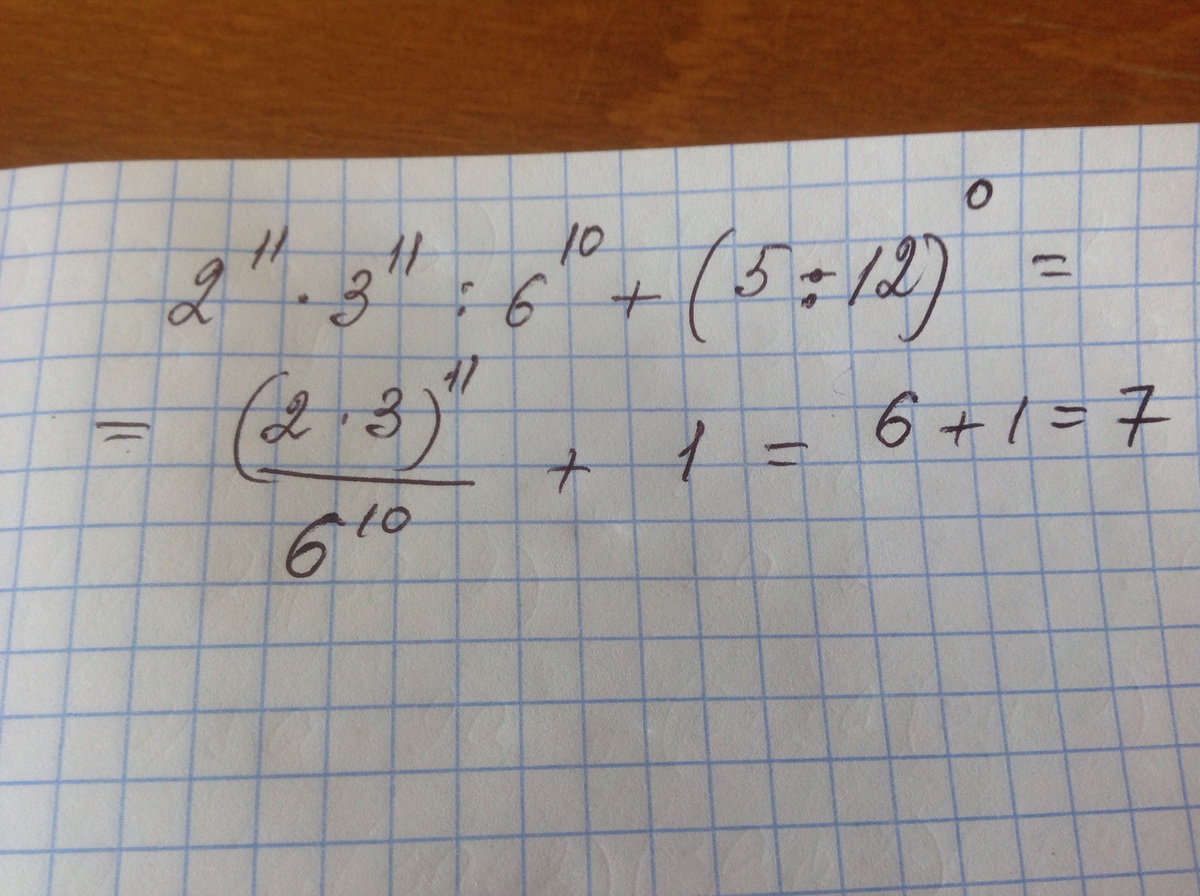 2¹¹ · 3¹¹ : 6¹⁰ + (5 ÷ 12)⁰ =
= (2 · 3)¹¹ / 6¹⁰ + 1 = 6 + 1 = 7